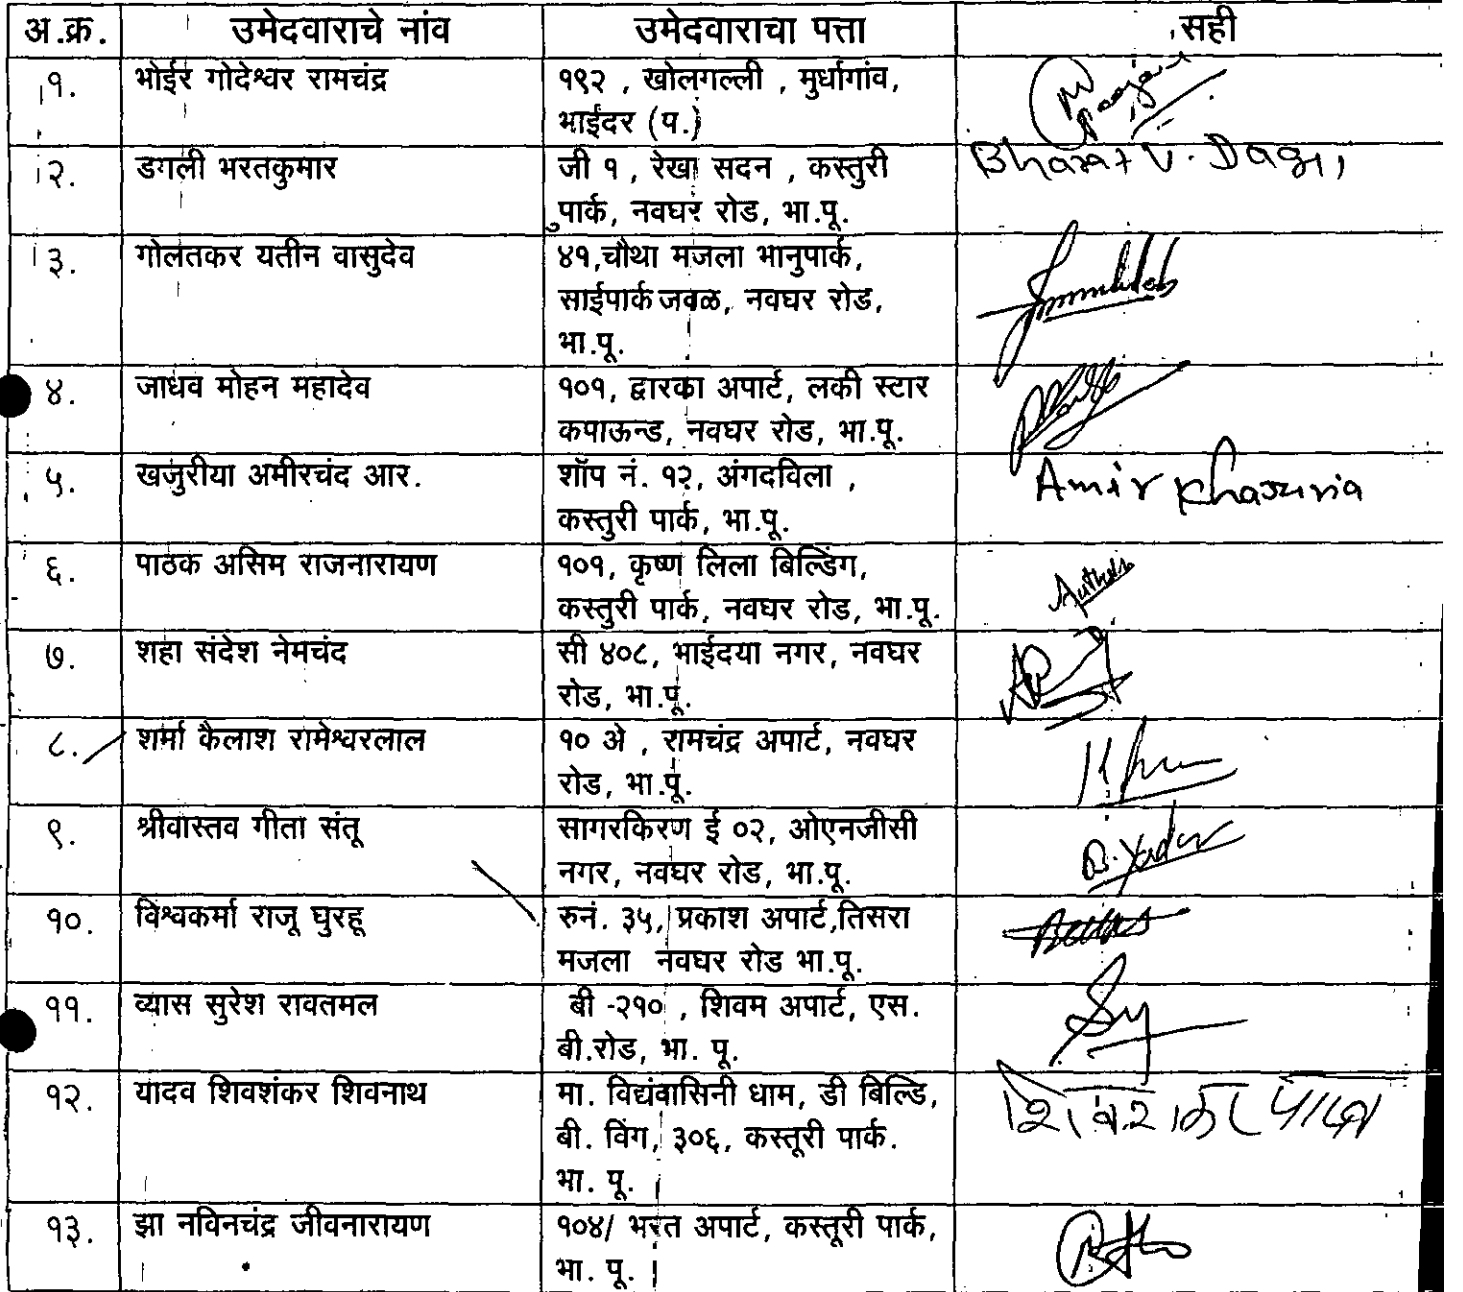 अ.क्र. उमेदवाराचे नांव उमेदवाराचा पत्ता सही
१. भोईर गोदेश्वर रामचंद्र १९२ , खोलगल्ली , मुर्धागांव,
भाईंदर (प.)
२. डगली भरतकुमार जी १ , रेखा सदन , कस्तुरी Bharat V. Dagli
पार्क, नवघर रोड, भा.पू.
३. गोलतकर यतीन वासुदेव ४१,चौथा मजला भानुपार्क,
साईपार्क जवळ, नवघर रोड,
भा.पू.
४. जाधव मोहन महादेव १०१, द्वारका अपार्ट, लकी स्टार
कपाऊन्ड, नवघर रोड, भा.पू.
५. खजुरीया अमीरचंद आर. शॉप नं. १२, अंगदविला , Amir Khajuria
कस्तुरी पार्क, भा.पू.
६. पाठक असिम राजनारायण १०१, कृष्ण लिला बिल्डिंग,
कस्तुरी पार्क, नवघर रोड, भा.पू.
७. शहा संदेश नेमचंद सी ४०८, भाईदया नगर, नवघर
रोड, भा.पू.
८. शर्मा कैलाश रामेश्वरलाल १० अे , रामचंद्र अपार्ट, नवघर
रोड, भा.पू.
९. श्रीवास्तव गीता संतू सागरकिरण ई ०२, ओएनजीसी
नगर, नवघर रोड, भा.पू.
१०. विश्वकर्मा राजू घुरहू रुनं. ३५, प्रकाश अपार्ट,तिसरा
मजला नवघर रोड भा.पू.
११. व्यास सुरेश रावतमल बी -२१० , शिवम अपार्ट, एस.
बी.रोड, भा. पू.
१२. यादव शिवशंकर शिवनाथ मा. विद्यंवासिनी धाम, डी बिल्डि, शिवशंकर यादव
बी. विंग, ३०६, कस्तूरी पार्क.
भा. पू.
१३. झा नविनचंद्र जीवनारायण १०४/ भरत अपार्ट, कस्तूरी पार्क,
भा. पू.